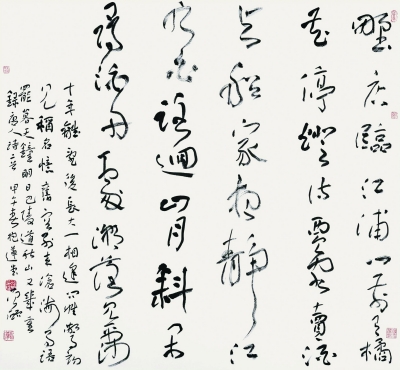 野店臨江浦門前有橘
花停燈待賈客賣酒
與船家夜靜江
水白路迴山月斜閑
尋泊舟處潮落見平沙
十年離亂後長大一相逢問姓驚初
見稱名憶舊容別來滄海事語
罷暮天鐘明日巴陵道秋山又幾重
錄唐人詩二首甲午春於